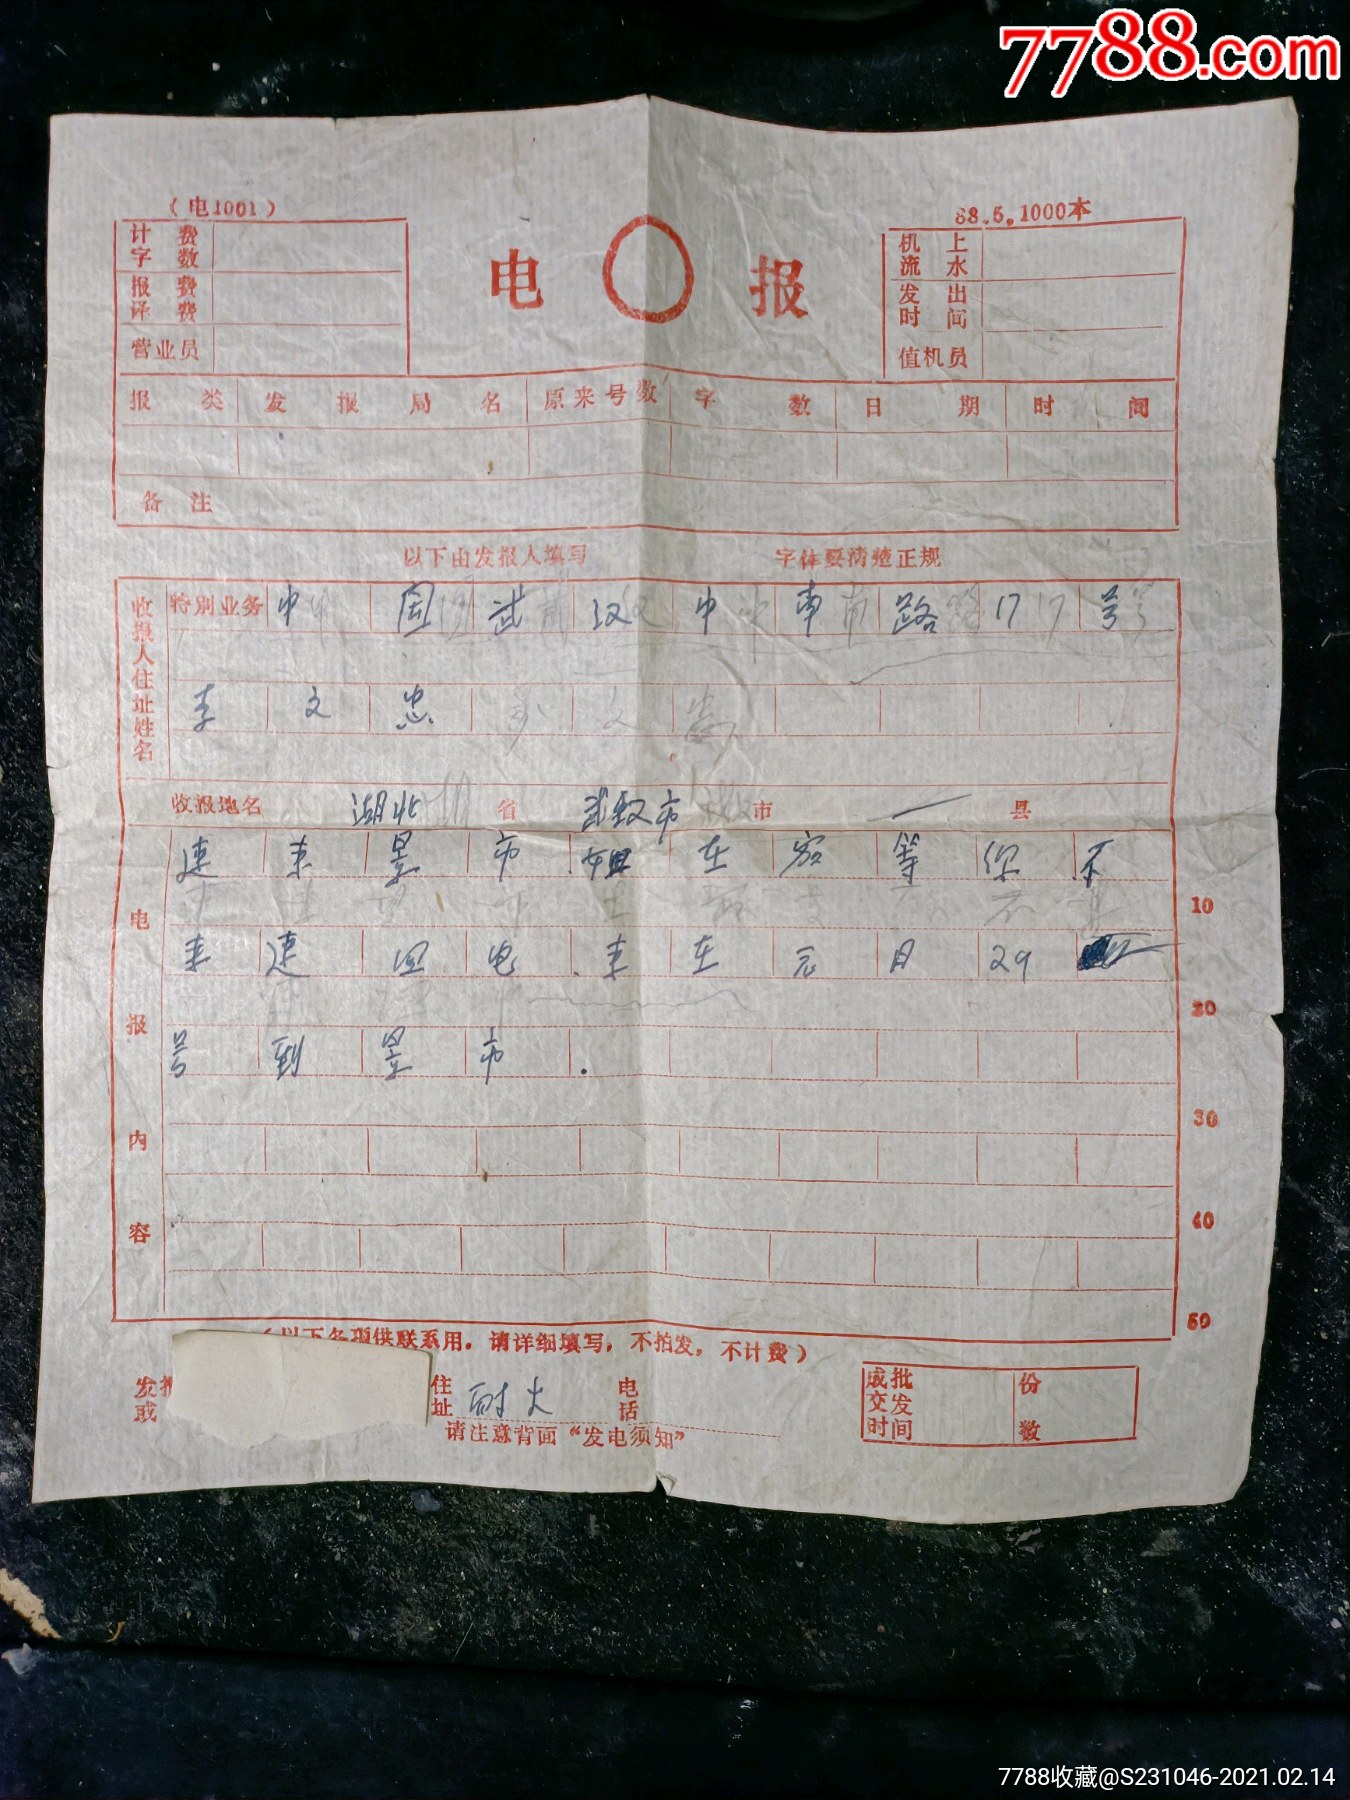 7788.com
(电1001)
88.5.1000本
计费字数
报费译费
营业员
电 报
机上流水
发出时间
值机员
报类 发报局名 原来号数 字数 日期 时间
备注
以下由发报人填写 字体要清楚正规
收报人住址姓名
特别业务 中国武汉中南路17号
李文忠
收报地名 湖北 省 武汉市 市 一 县
电报内容
速来昙市姐在家等你不
10
来速回电.来在元月29
20
号到昙市.
30
40
50
(以下各项供联系用,请详细填写,不拍发,不计费)
发报
或
住址 耐火 电话
请注意背面“发电须知”
成批交发时间 份数
7788收藏@S231046-2021.02.14